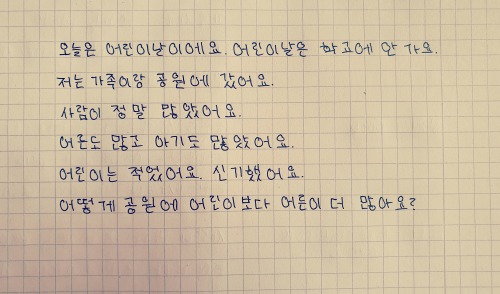 오늘은 어린이날이에요. 어린이날은 학교에 안 가요.
저는 가족이랑 공원에 갔어요.
사람이 정말 많았어요.
어른도 많고 아기도 많았어요.
어린이는 적었어요. 신기했어요.
어떻게 공원에 어린이보다 어른이 더 많아요?